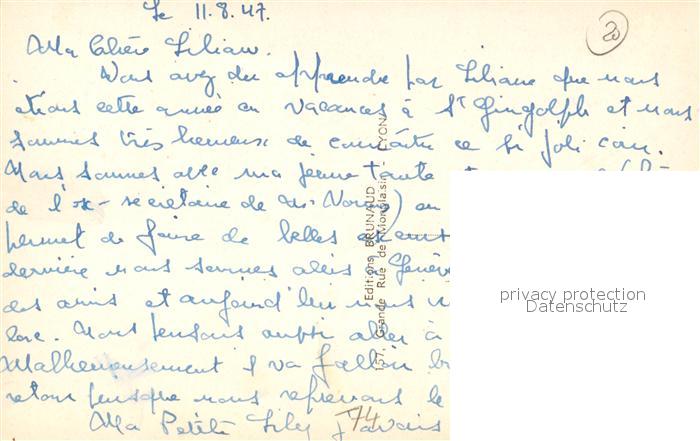 Le 11.8.47.
20
Ma Chère Lilian.
Vous avez du apprendre par Liliane que nous
étions cette année en vacances à St Gingolph et nous
sommes très heureux de connaître ce si joli coin.
Nous sommes avec ma jeune tante
de l'ex-secrétaire de Mr
permet de faire de belles
dernière nous sommes allés à Genève
des amis et aujourd'hui nous
Nous pensons aussi aller à
Malheureusement il va falloir
retour puisque nous reprenons le
Ma Petite Lily j'avais
74
Editions BRUNAUD
157, Grande Rue de Monplaisir - LYON
privacy protection
Datenschutz